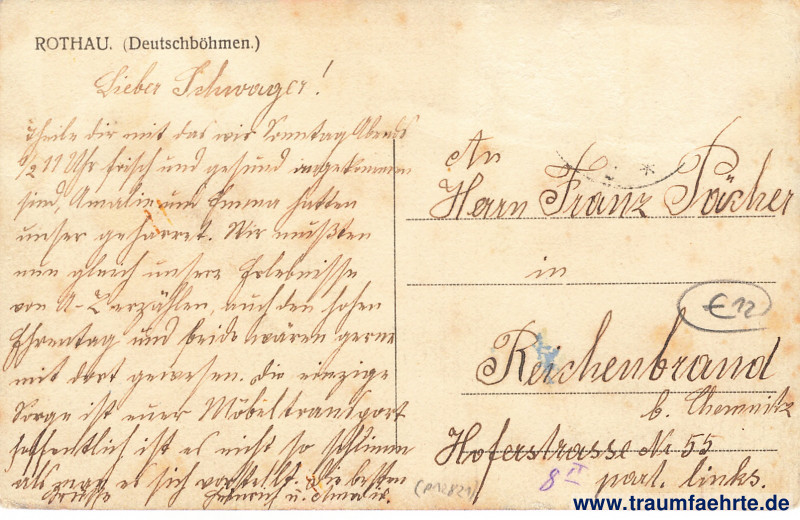 ROTHAU. (Deutschböhmen.)
Lieber Schwager!
Theile dir mit das wir Sonntag Abends
1/2 11 Uhr frisch und gesund angekommen
sind, Amalie und Emma hatten
unser geharret. Wir mußten
nun gleich unsere Erlebnisse
von A-Z erzählen, auch den hohen
Ehrentag und beide wären gerne
mit dort gewesen. Die einzige
Sorge ist euer Möbeltransport
hoffentlich ist es nicht so schlimm
als man es sich vorstellt. Die besten
Grüße Heinrich u. Amalie.
An
Herrn Franz Pöcher
in
Reichenbrand
b. Chemnitz
Hoferstrasse Nr 55
part. links.
€12
8
www.traumfaehrte.de